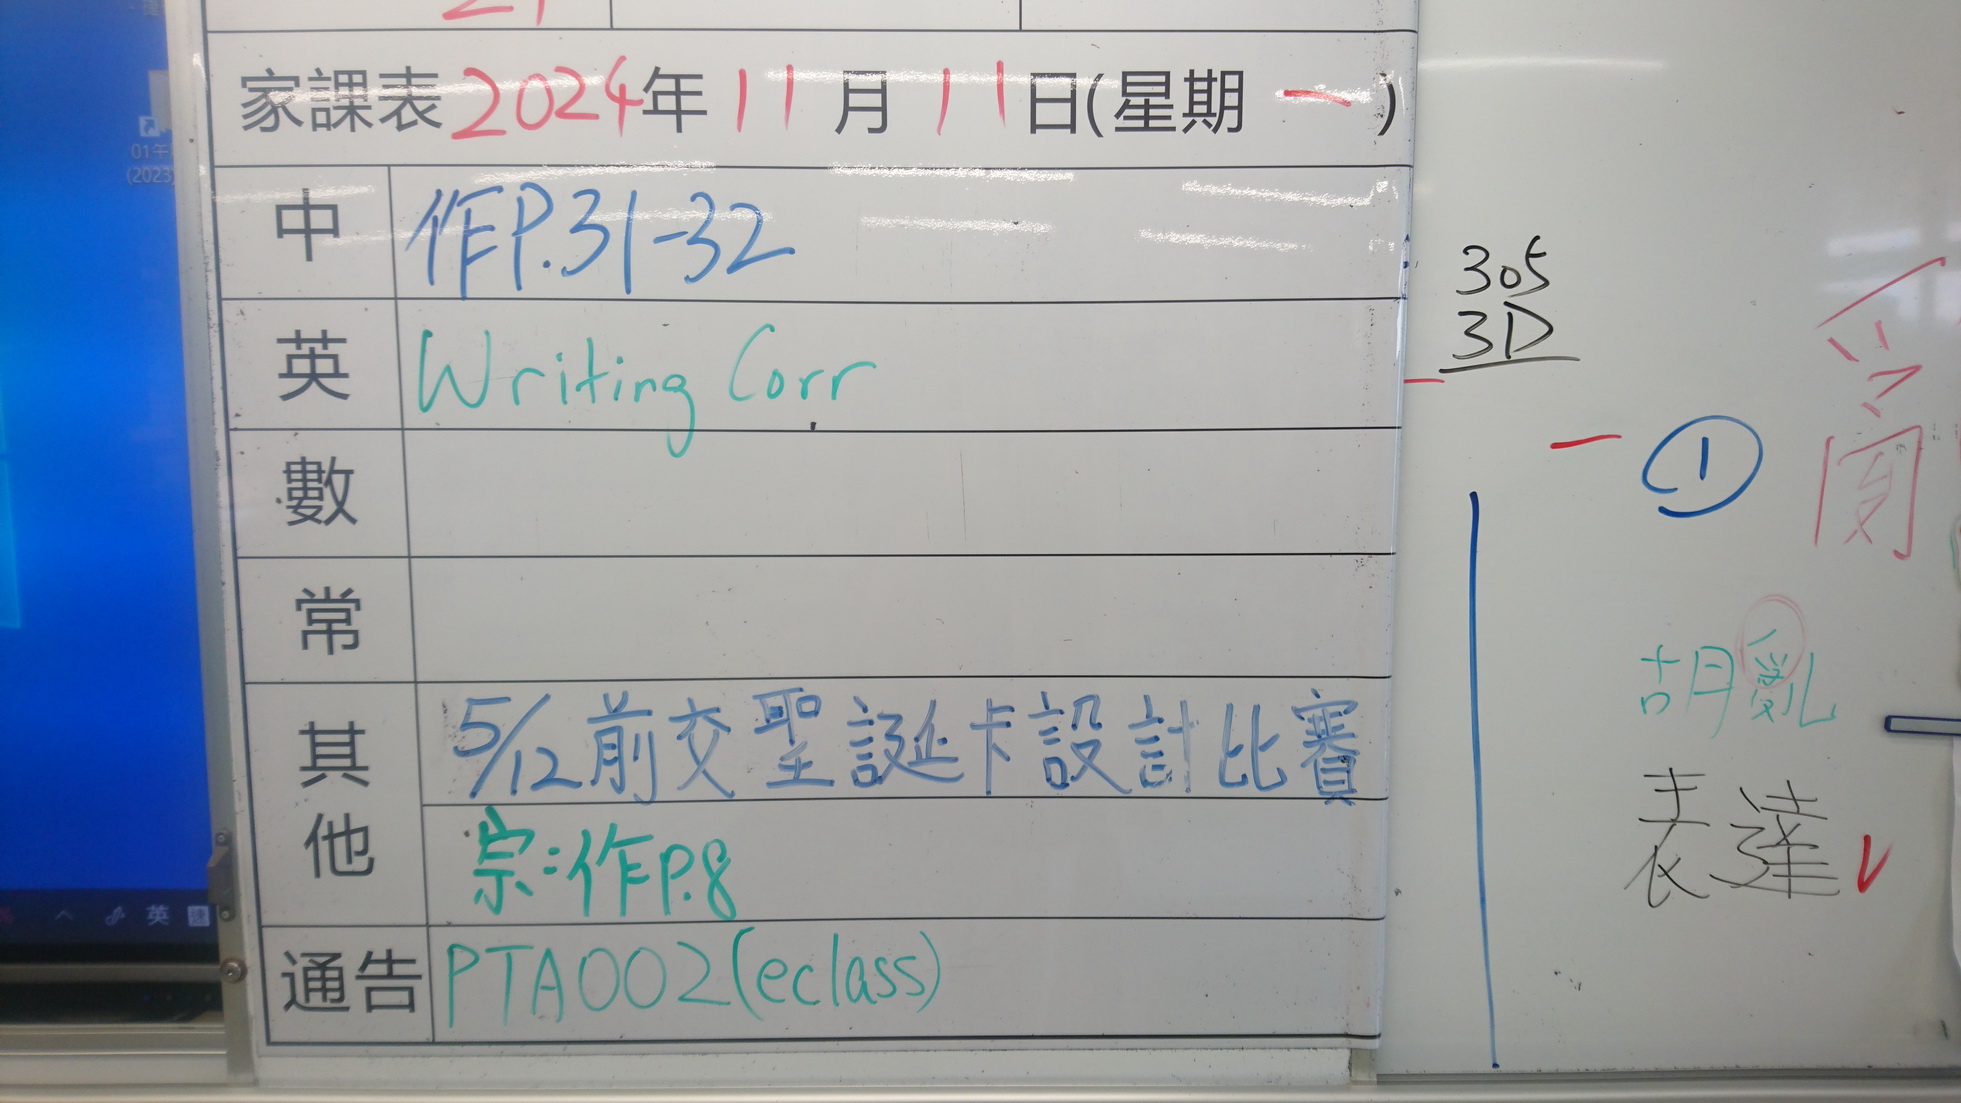 01午
(2023)
家課表 2024年 11月 11日(星期一)
中 作P.31-32
英 Writing Corr
數
常
其他 5/12前交聖誕卡設計比賽
宗:作P.8
通告 PTA002(eclass)
英
305
3D
①
胡亂
表達